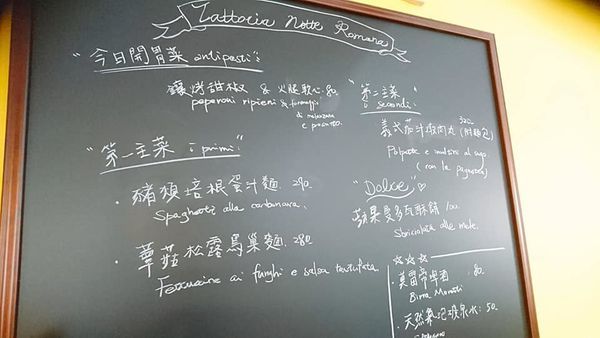 Trattoria Notte Romana
"今日開胃菜 antipasti":
鑲烤甜椒 & 火腿軟心 80
peperoni ripieni & formaggi
di melanzana
e prosciutto.
"第一主菜 i primi":
· 豬頰培根蛋汁麵 290
Spaghetti alla carbonara.
· 蕈菇松露鳥巢麵. 280
Fettuccine ai funghi e salsa tartufata
"第二主菜
i secondi:
義式茄汁燉肉丸 320 (附麵包)
Polpette e al sugo
(con la pagnotta)
"Dolce"♡
蘋果曼多瓦酥餅 100
Sbriciolata alle mele.
☆☆☆
· 莫雷蒂啤酒 . 80.
Birra Moretti
· 天然氣泡礦泉水: 50.